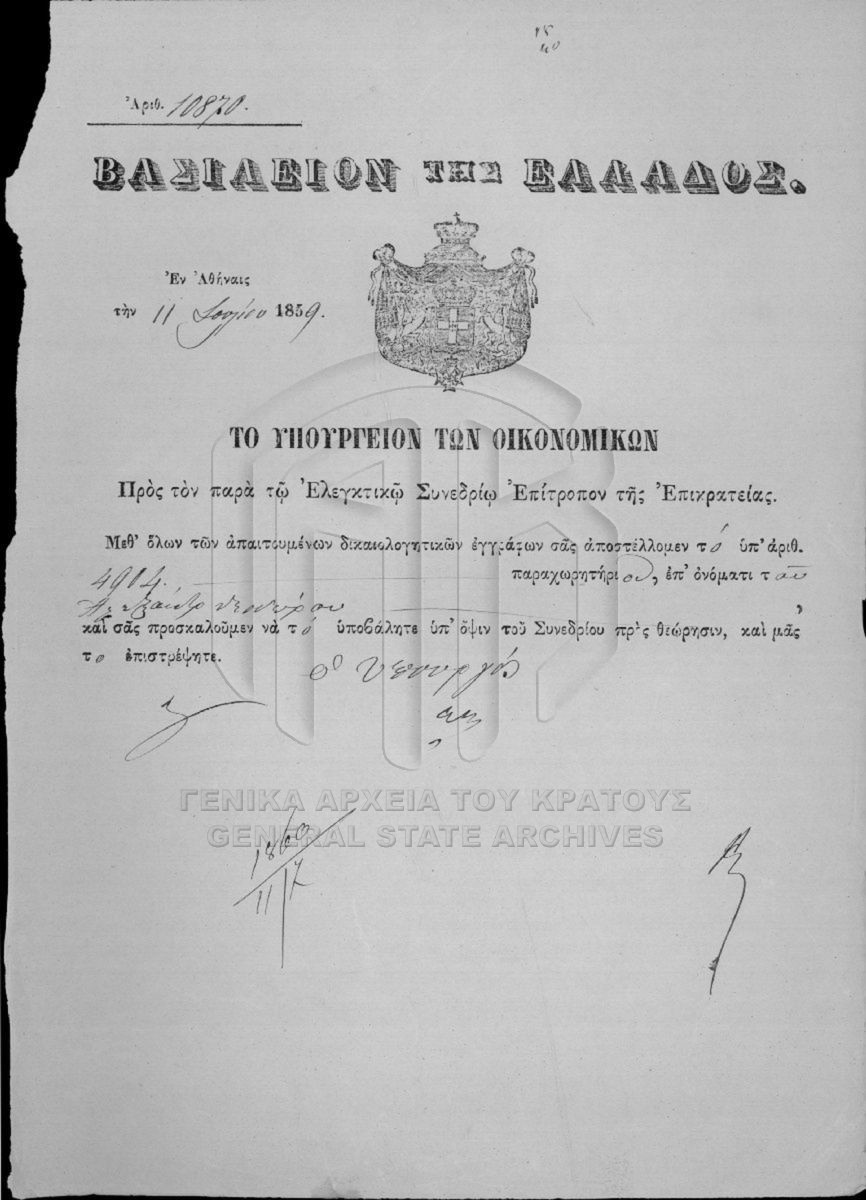 Ἀριθ. 10870.
ΒΑΣΙΛΕΙΟΝ ΤΗΣ ΕΛΛΑΔΟΣ.
Ἐν Ἀθήναις
τὴν 11 Ἰουλίου 1859.
ΤΟ ΥΠΟΥΡΓΕΙΟΝ ΤΩΝ ΟΙΚΟΝΟΜΙΚΩΝ
Πρὸς τὸν παρὰ τῷ Ἐλεγκτικῷ Συνεδρίῳ Ἐπίτροπον τῆς Ἐπικρατείας.
Μεθ' ὅλων τῶν ἀπαιτουμένων δικαιολογητικῶν ἐγγράφων σᾶς ἀποστέλλομεν τό ὑπ' ἀριθ.
4904. παραχωρητήριον, ἐπ' ὀνόματι τοῦ
καὶ σᾶς προσκαλοῦμεν νὰ τό ὑποβάλητε ὑπ' ὄψιν τοῦ Συνεδρίου πρὸς θεώρησιν, καὶ μᾶς
το ἐπιστρέψητε.
ὁ Ὑπουργός
ΓΕΝΙΚΑ ΑΡΧΕΙΑ ΤΟΥ ΚΡΑΤΟΥΣ
GENERAL STATE ARCHIVES
1860
11/7